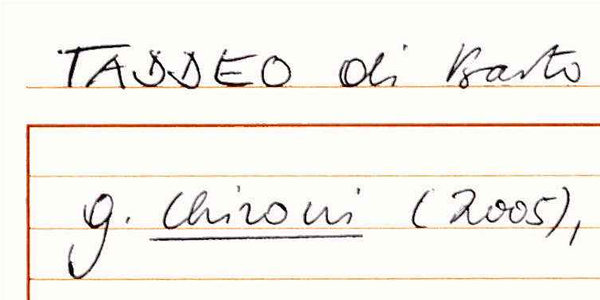 TADDEO di Barto
g. Chironi (2005),